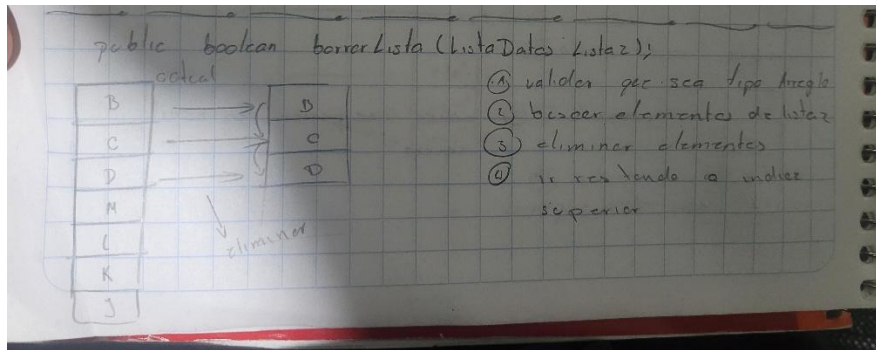 public boolean borrarLista (ListaDatos Lista2);
actual
B
C
D
M
L
K
J
B
C
D
eliminar
① validar que sea tipo Arreglo
② buscar elementos de lista2
③ eliminar elementos
④ ir restando a indice
superior